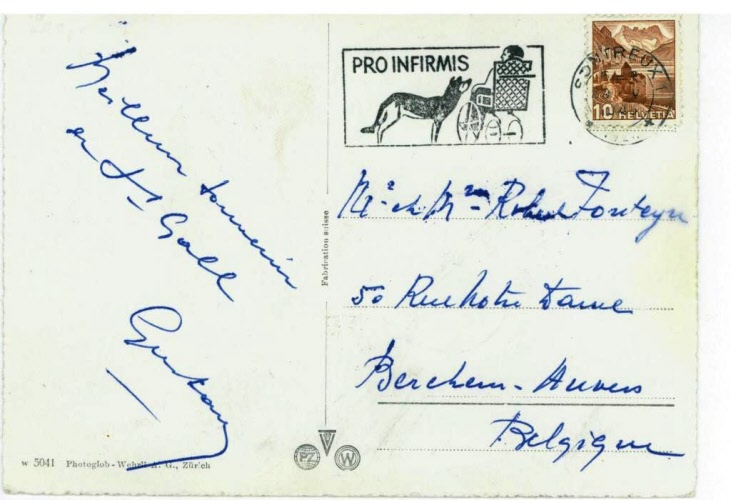 Meilleur souvenir
de St Gall
Gustave
PRO INFIRMIS
MONTREUX 1
10 HELVETIA
Mr et Mme Robert Fonteyn
50 Rue Notre Dame
Berchem-Anvers
Belgique
Fabrication suisse
w 5041 Photoglob-Wehrli A. G., Zürich
PZ W